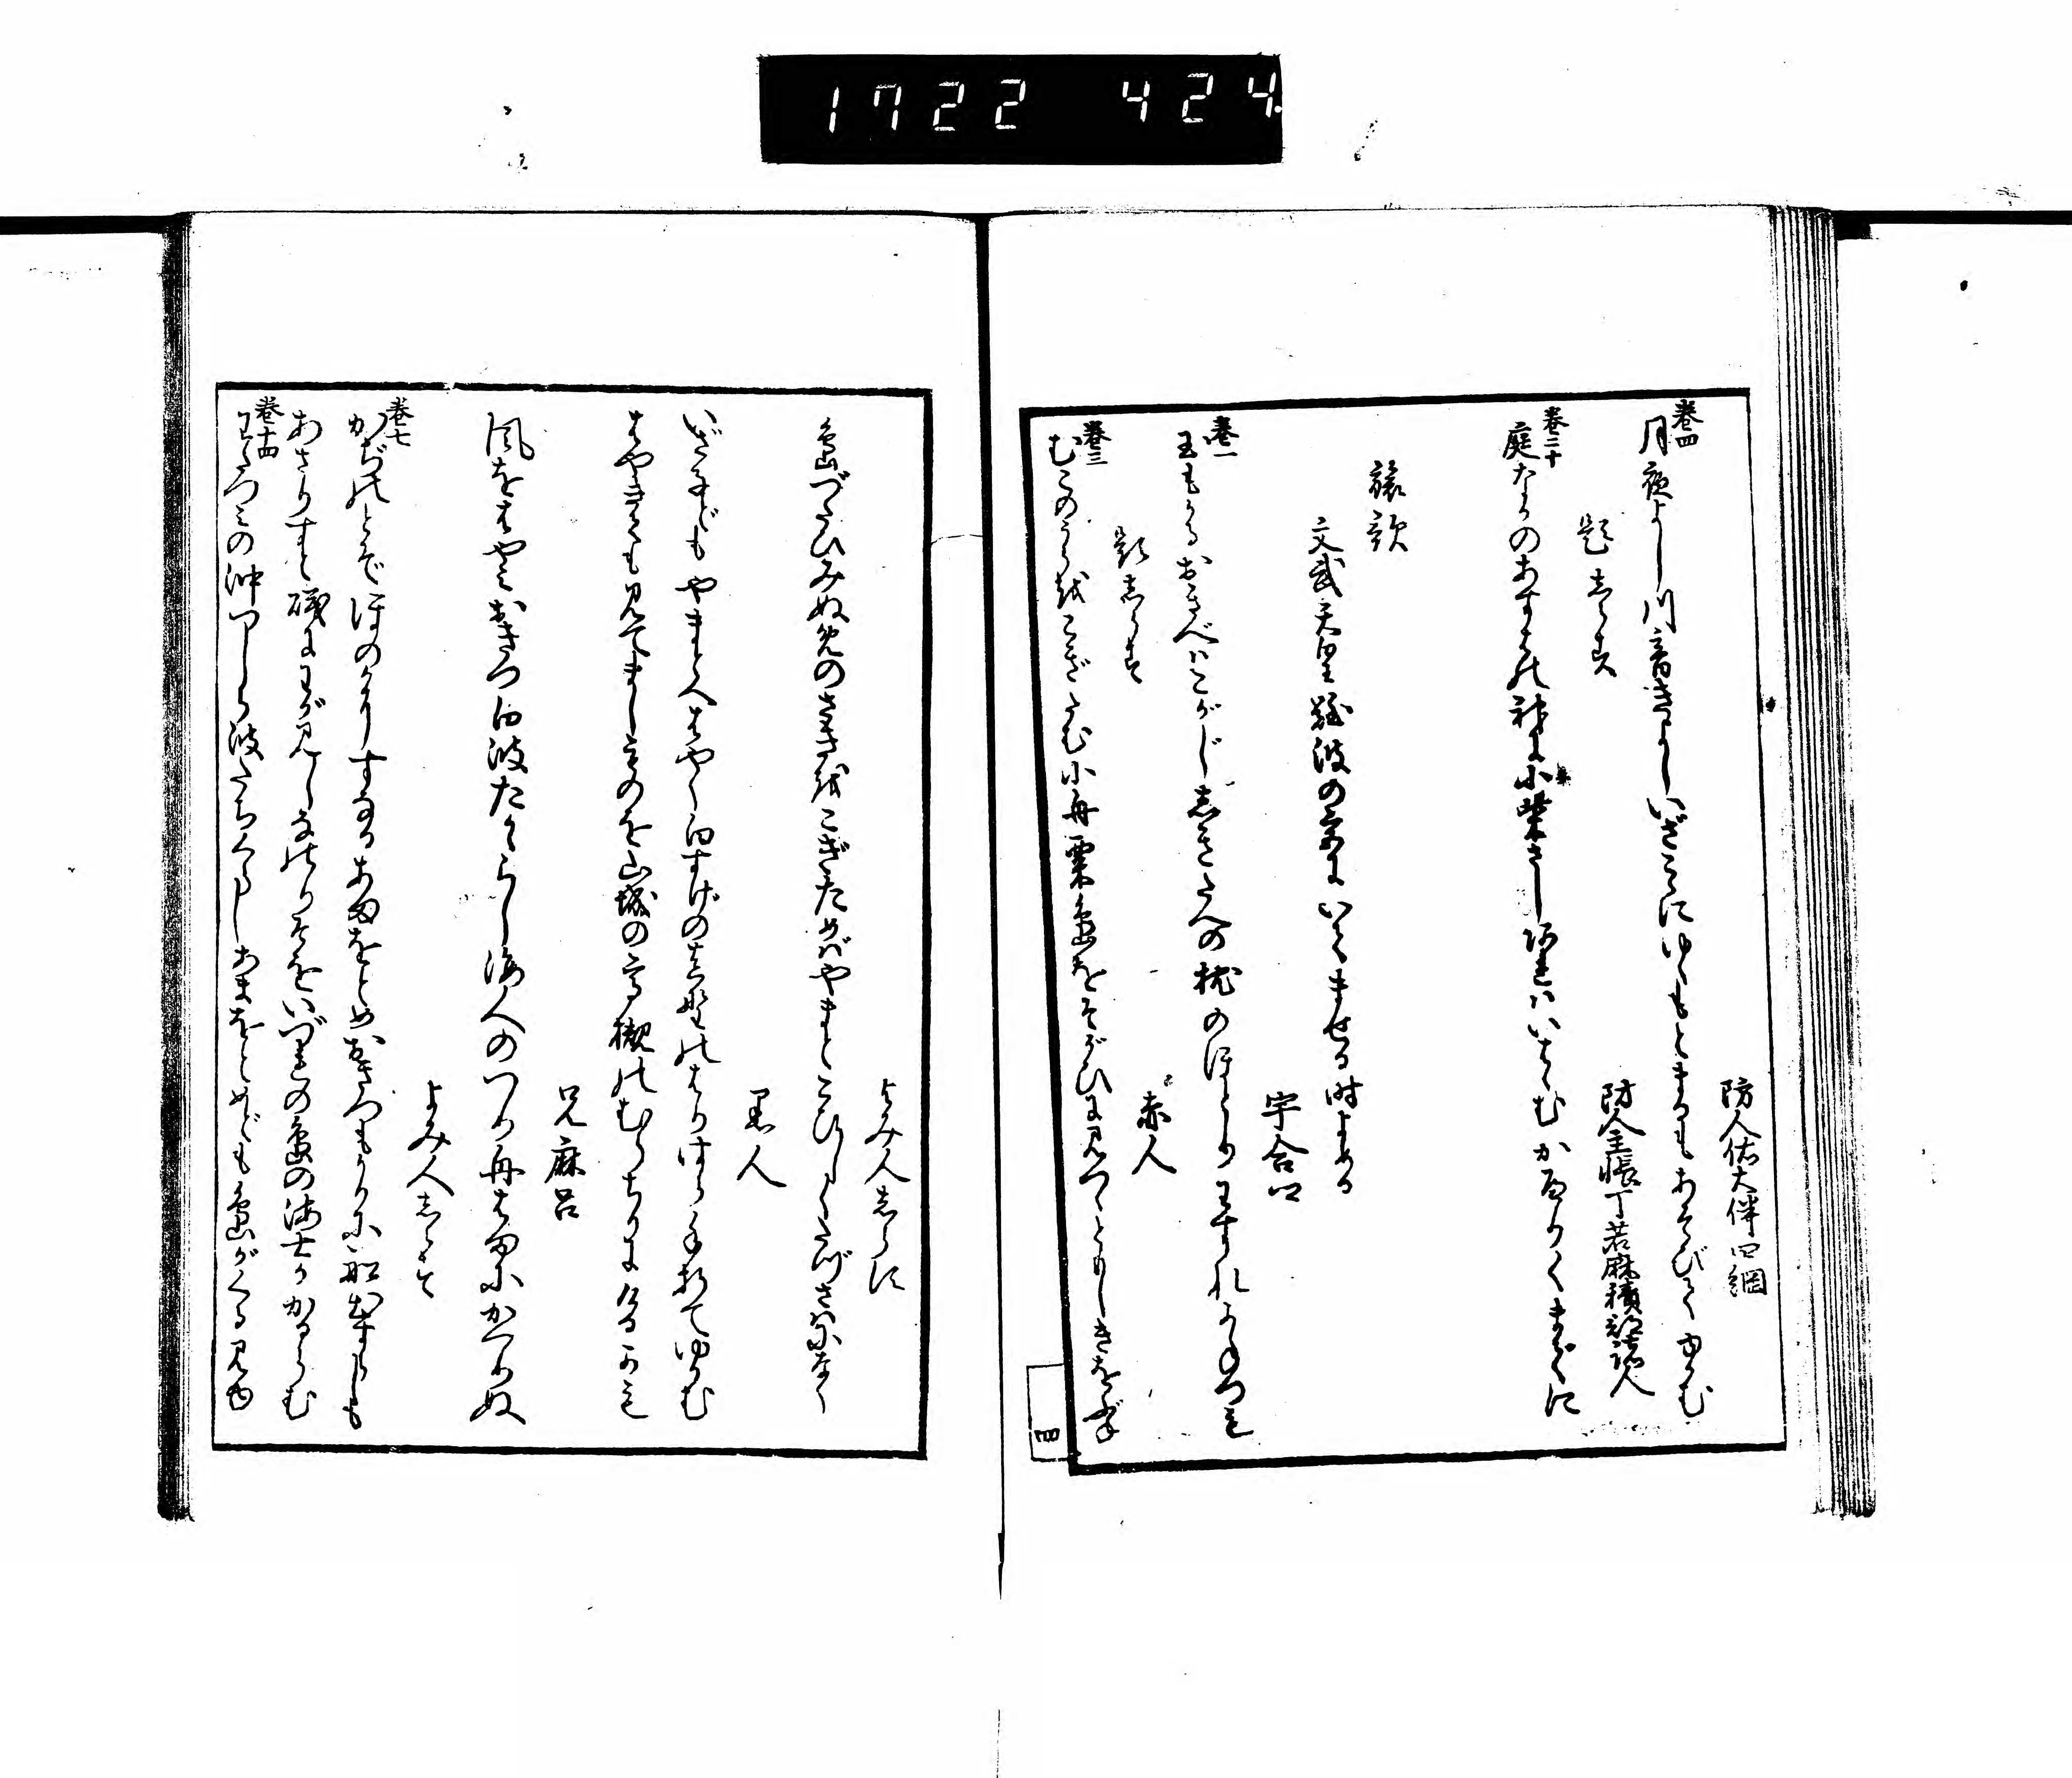 1722 424.
防人佑大伴四綱
巻四
月夜よし川音きよしいざこゝにゆくもとまるもあそびてゆかむ
題しらす
防人主帳丁若麻續部諸人
巻二十
庭なかのあすはの神に小柴さし阿れはいはゝむかへりくまでに
旅歌
文武天皇難波の宮にいてませる時よめる
宇合
巻一
玉もかるおきへはこがじ志きたへの枕のほとりわすれかねつも
題志らす
赤人
巻三
むこのうらをこぎたむ小舟粟島をそがひに見つゝともしきをぶね
四
よみ人志らに
島づたひみぬめのさきをこぎためばやまとこひしくたづさはになく
黒人
いざ子どもやまとへはやく白すげの真野のはりはら手折てゆかむ
はやきても見てましものを山城の高槻のむらちりにけるかも
兄麻呂
風をはやみおきつ白波たかゝらし海人のつり舟はまにかへりぬ
よみ人志らす
巻七
かぢのとぞほのかにすなるあまをとめおきつもかりに船出すらしも
あさりすと磯にわが見しなのりそをいづれの島の海士かかるらむ
巻十四
わたつみの沖つしら波たちくらしあまをとめども島がくる見ゆ